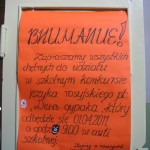 ВНИМАНИЕ!
Zapraszamy wszystkich
chętnych do udziału
w szkolnym konkursie
języka rosyjskiego pt.
który
odbędzie się 01.04.2011
o godz. 9.00 w auli
szkolnej.